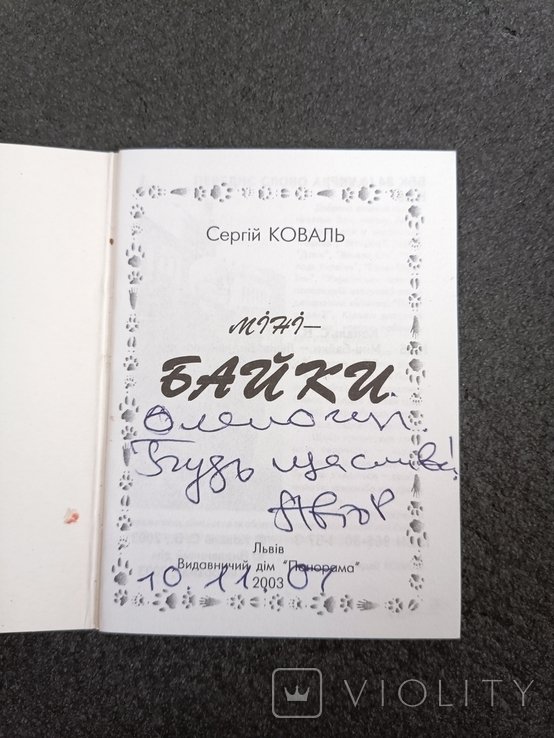 Сергій КОВАЛЬ
МІНІ–
БАЙКИ
Будь щаслива!
Автор
Львів
Видавничий дім "Панорама"
2003
10 11.
VIOLITY